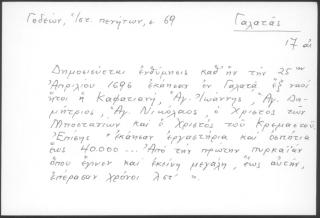 Γεδεών, Ἱστ. πενήτων, σ 69
Γαλατᾶς
17 αἰ
Δημοσιεύεται ἐνθύμησις καθ' ἥν τήν 25ην
Ἀπριλίου 1696 ἐκάησαν ἐν Γαλατᾷ ἕξ ναοί
ἤτοι ἡ Καφατιανή, Ἅγ. Ἰωάννης, Ἅγ. Δη-
μήτριος, Ἅγ. Νικόλαος, ὁ Χριστός τῶν
Μποστανίων καί ὁ Χριστός τοῦ Κρεμαστοῦ.
Ἐπίσης "ἐκάησαν ἐργαστήρια καί ὀσπήτια
ἕως 40.000... Ἀπό τήν πρώτην πυρκαϊάν
ὅπου ἔγινεν καί ἐκείνη μεγάλη, ἕως αὐτήν,
ἐπέρασαν χρόνοι λϛ' "